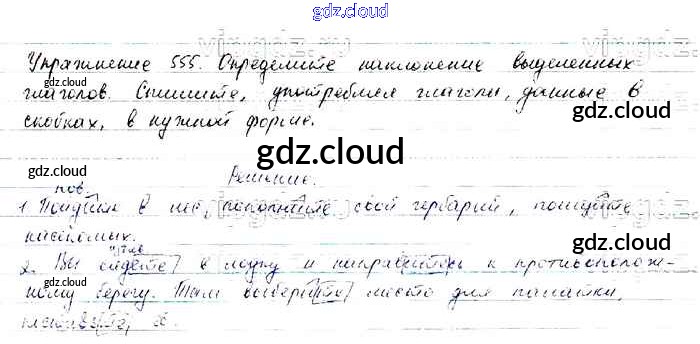 gdz.cloud
Упражнение 555. Определите наклонение выделенных
глаголов. Спишите, употребляя глаголы, данные в
скобках, в нужной форме.
gdz.cloud
gdz.cloud
gdz.cloud
Решение.
пов.
gdz.cloud
1. Пойдите в лес, пополните свой гербарий, поищите
насекомых.
gdz.cloud
2. Вы сядете в лодку и направитесь к противополож-
ному берегу. Там выберите место для палатки,
gdz.cloud
gdz.cloud